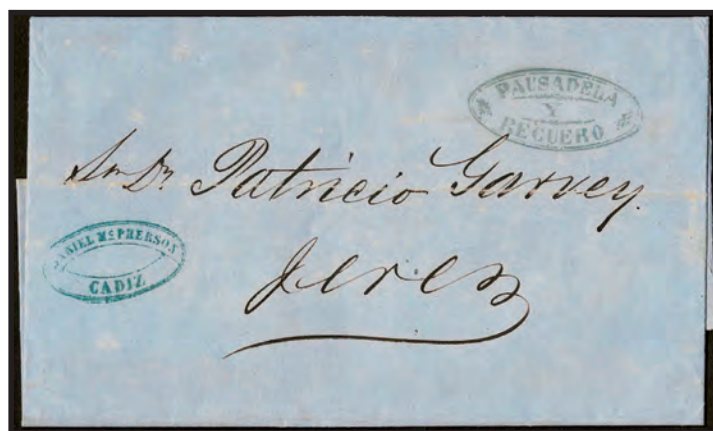 PAUSADELA
Y
RECUERO
Sr Dn Patricio Garvey.
DANIEL McPHERSON
CADIZ
Jerez